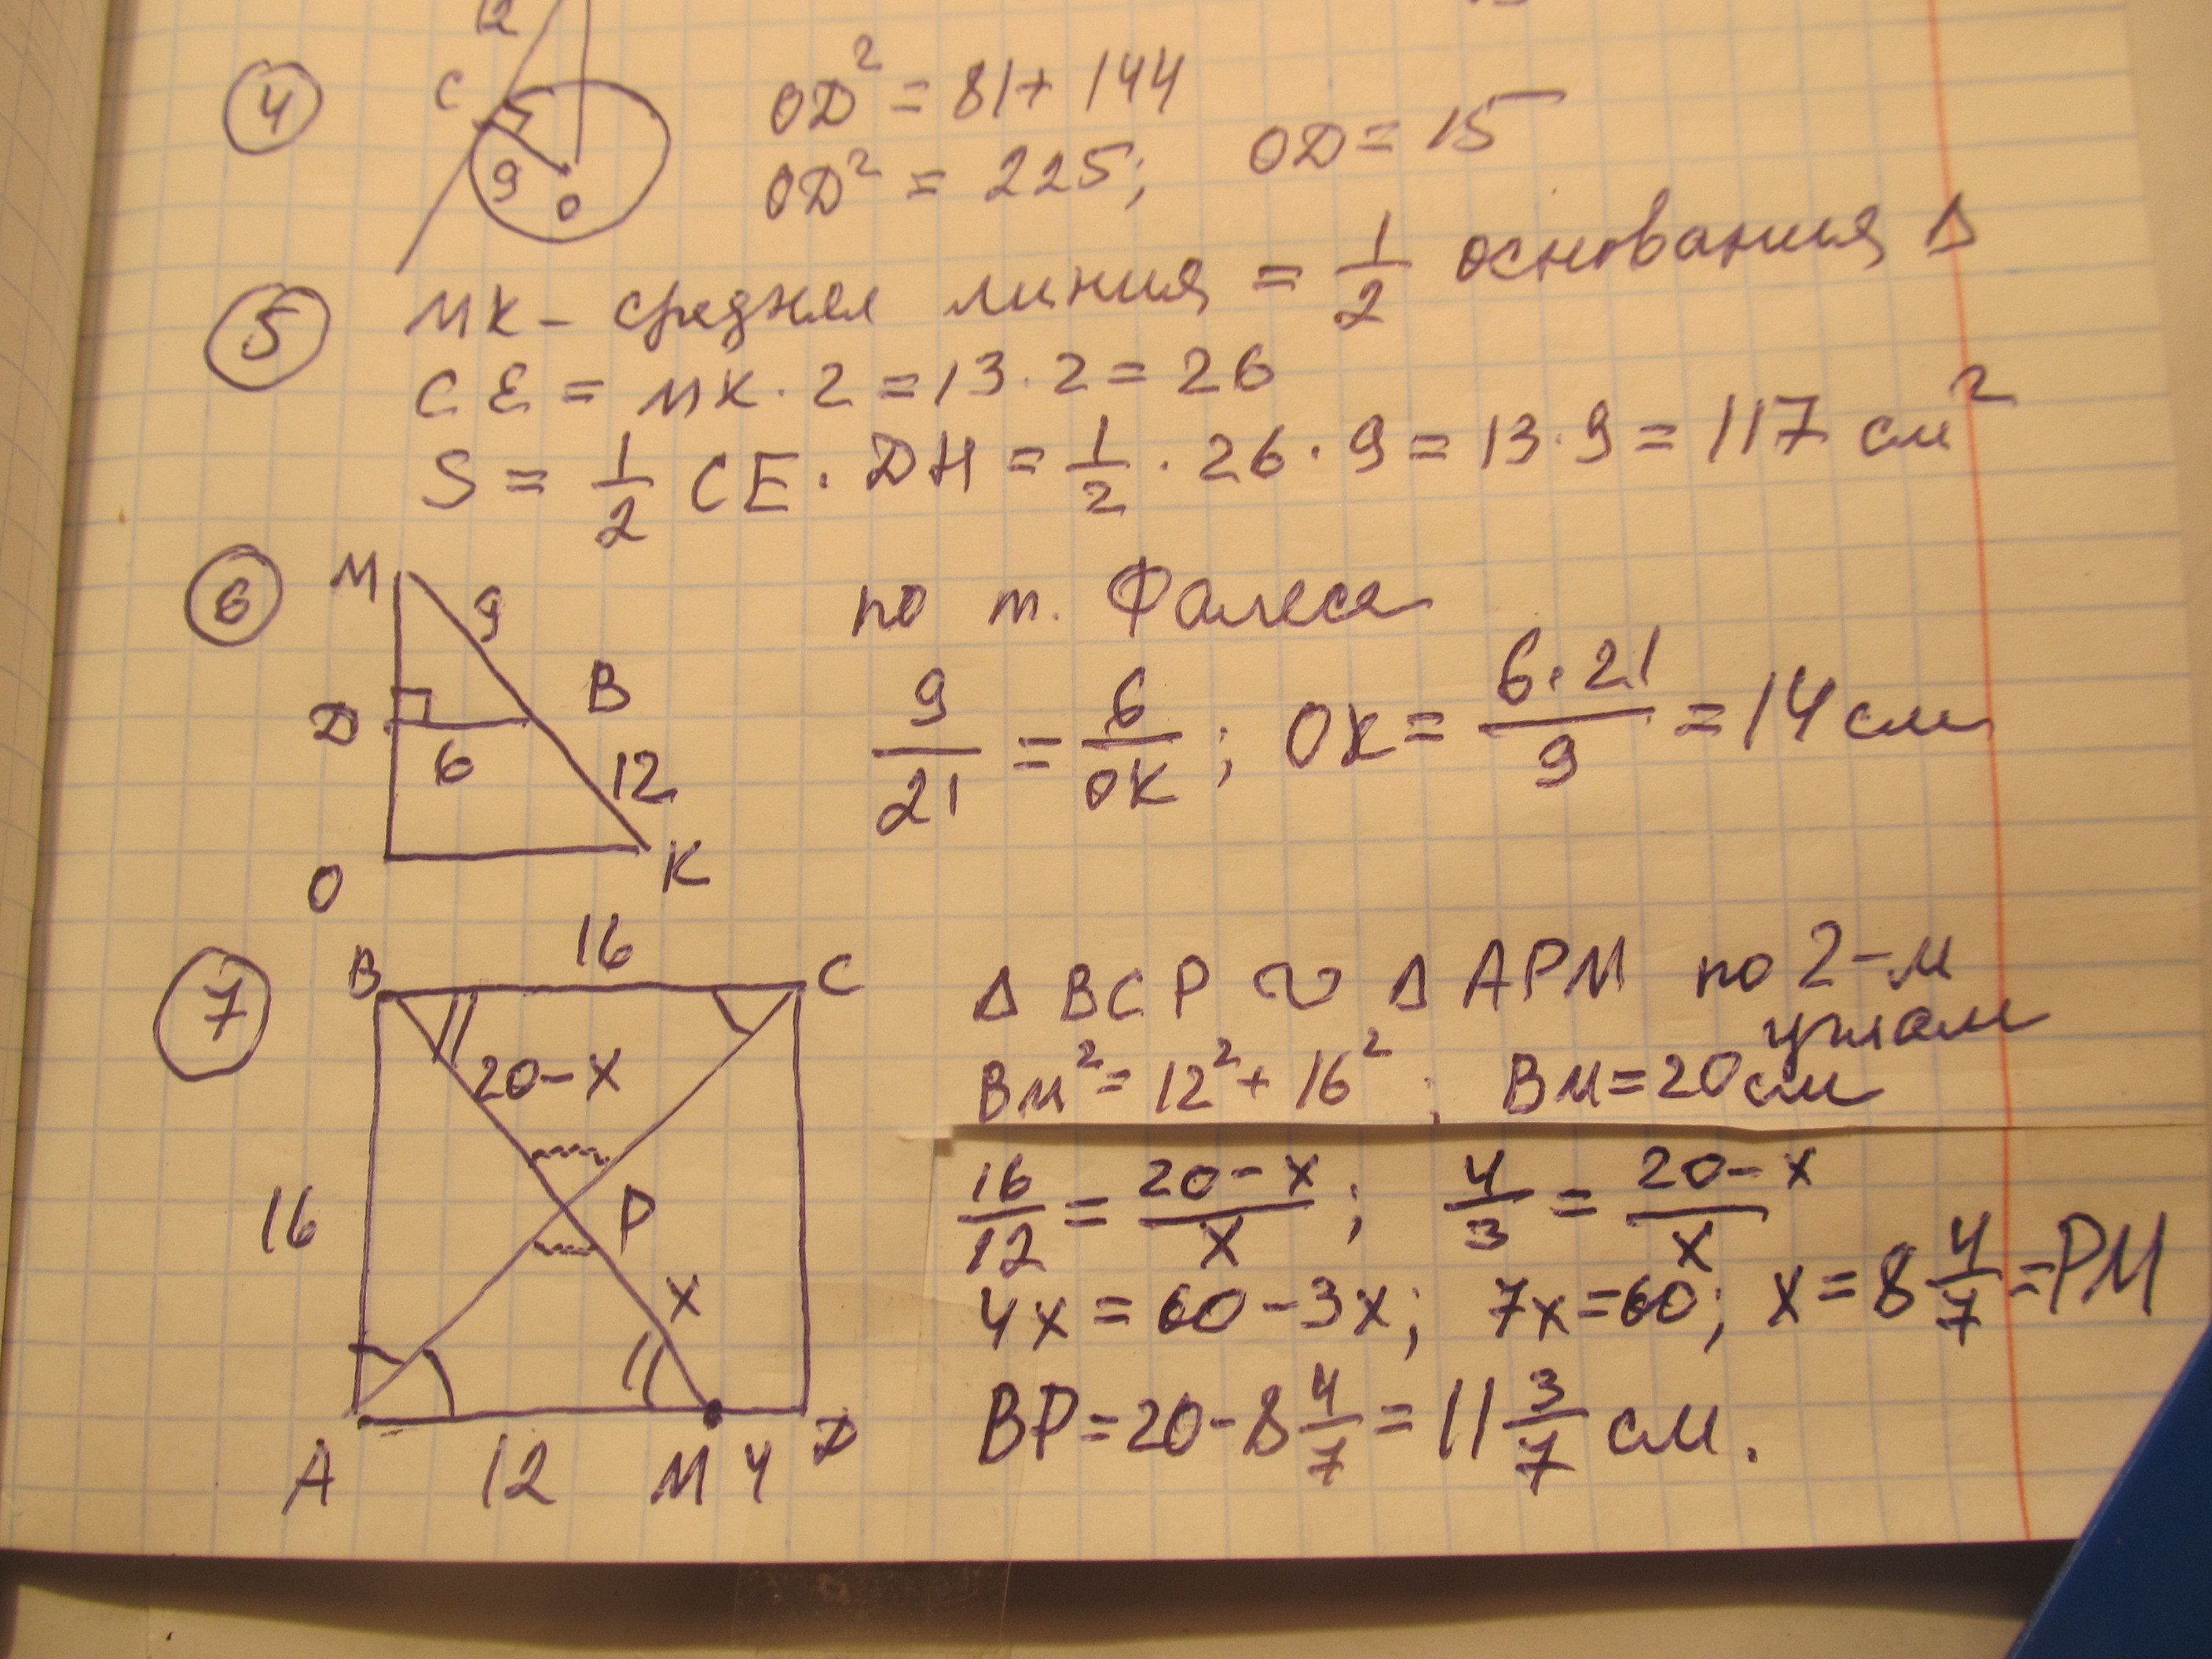 12
4
C
9
O
OD² = 81 + 144
OD² = 225; OD = 15
5
MK - средняя линия = 1/2 основания Δ
CE = MK · 2 = 13 · 2 = 26
S = 1/2 CE · DH = 1/2 · 26 · 9 = 13 · 9 = 117 см²
6
M
9
D
B
6
12
O
K
по т. Фалеса
9/21 = 6/OK; OK = 6·21/9 = 14 см
7
16
B
C
20-x
16
P
x
A
12
M
4
D
Δ BCP ∾ Δ APM по 2-м
углам
BM² = 12² + 16²; BM = 20 см
16/12 = 20-x/x; 4/3 = 20-x/x
4x = 60 - 3x; 7x = 60; x = 8 4/7 = PM
BP = 20 - 8 4/7 = 11 3/7 см.